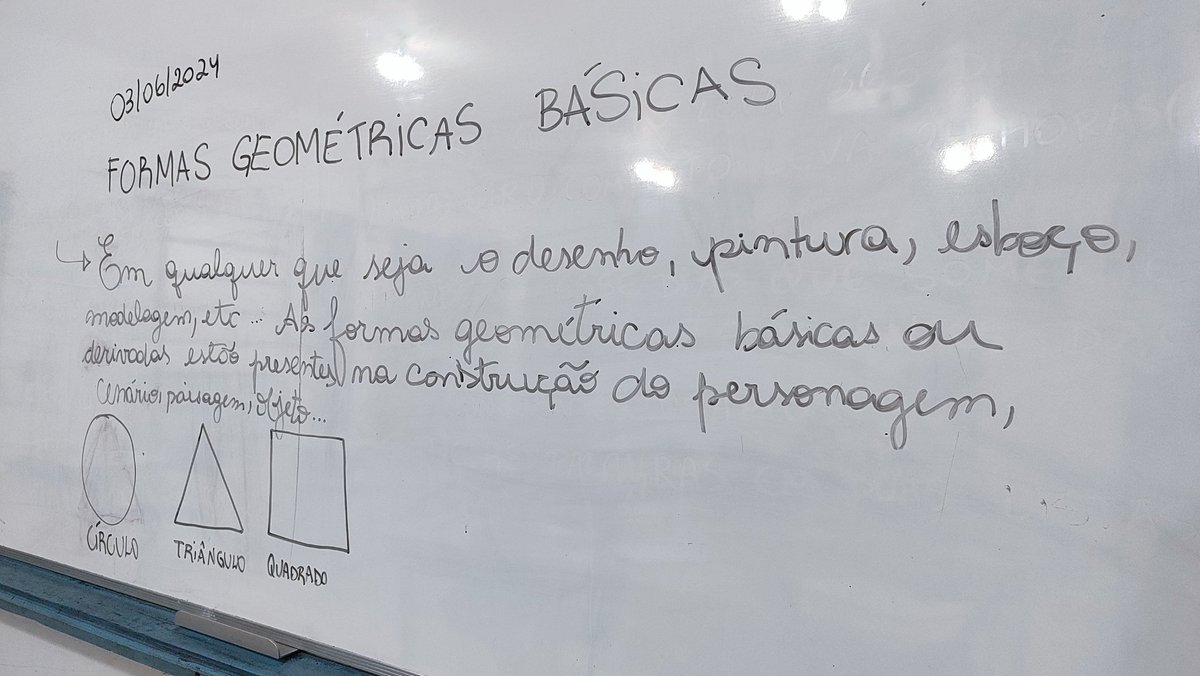 03/06/2024
FORMAS GEOMÉTRICAS BÁSICAS
↳ Em qualquer que seja o desenho, pintura, esboço,
modelagem, etc... As formas geométricas básicas ou
derivadas estão presentes na construção do personagem,
cenário, paisagem, objeto...
CÍRCULO TRIÂNGULO QUADRADO